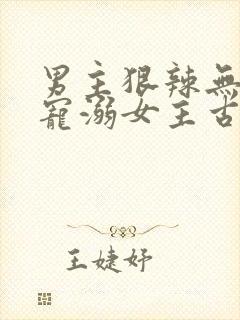 男主狠辣無
寵溺女主古
王婕妤